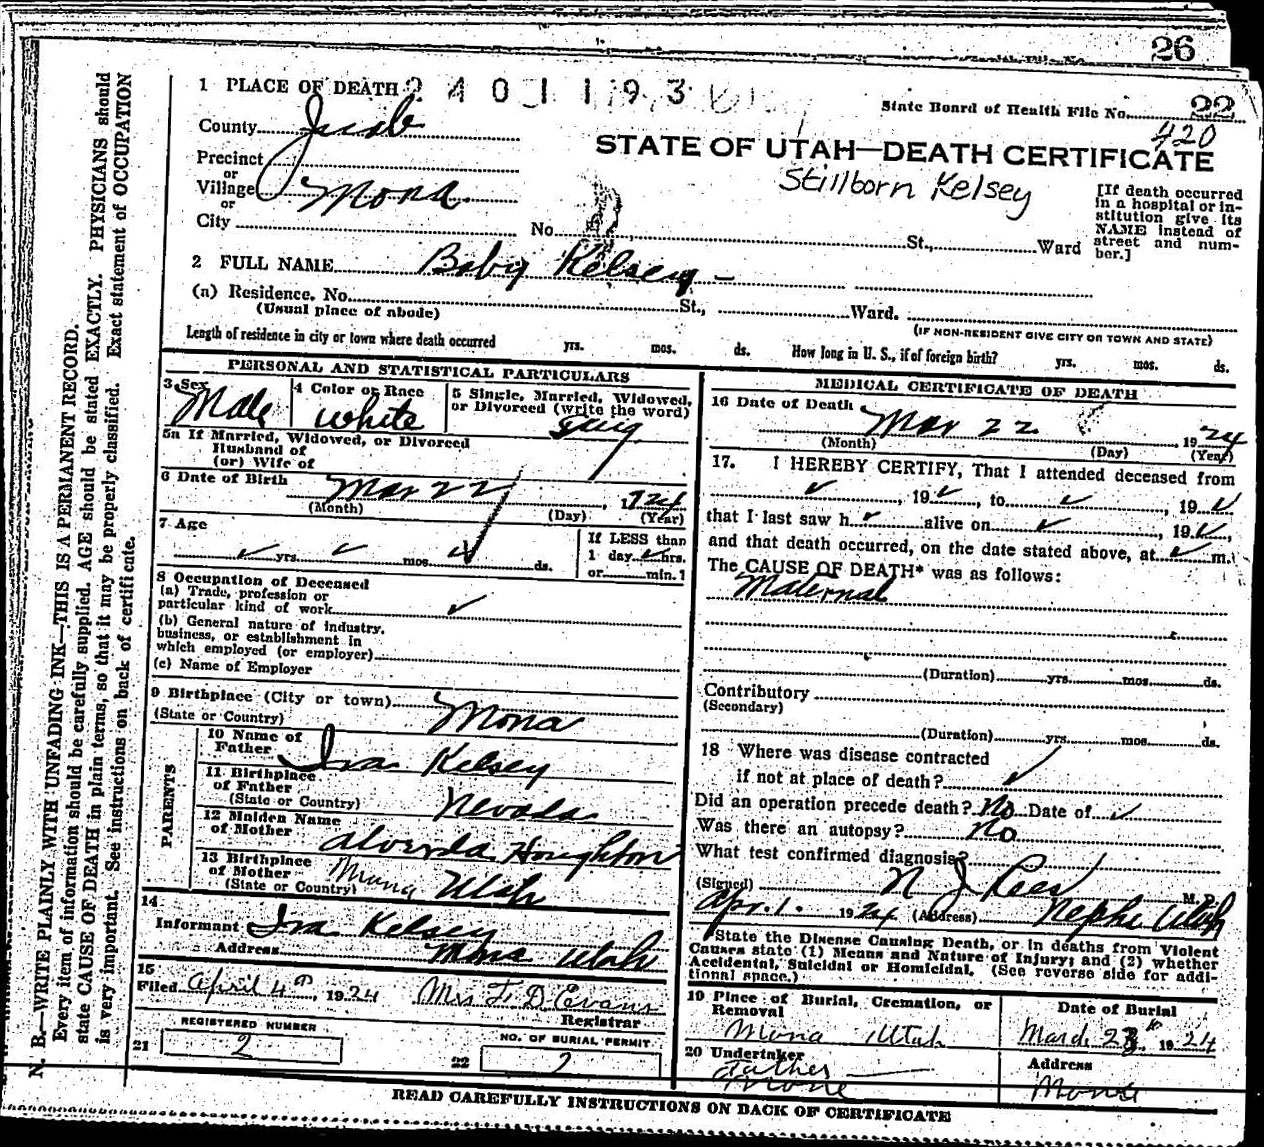 26
1 PLACE OF DEATH 2401193
State Board of Health File No. 22
420
County Juab
STATE OF UTAH—DEATH CERTIFICATE
Stillborn Kelsey
Precinct
or
Village Mona
or
City No. St., Ward
[If death occurred
in a hospital or in-
stitution give its
NAME instead of
street and num-
ber.]
2 FULL NAME Baby Kelsey
(a) Residence, No. St., Ward.
(Usual place of abode) (IF NON-RESIDENT GIVE CITY OR TOWN AND STATE)
Length of residence in city or town where death occurred yrs. mos. ds. How long in U. S., if of foreign birth? yrs. mos. ds.
PERSONAL AND STATISTICAL PARTICULARS
3 Sex Male
4 Color or Race White
5 Single, Married, Widowed,
or Divorced (write the word)
5a If Married, Widowed, or Divorced
Husband of
(or) Wife of
6 Date of Birth Mar 22, 1924
(Month) (Day) (Year)
7 Age
yrs. mos. ds.
If LESS than
1 day hrs.
or min.?
8 Occupation of Deceased
(a) Trade, profession or
particular kind of work
(b) General nature of industry,
business, or establishment in
which employed (or employer)
(c) Name of Employer
9 Birthplace (City or town) Mona
(State or Country)
PARENTS
10 Name of
Father Ira Kelsey
11 Birthplace
of Father Nevada
(State or Country)
12 Maiden Name
of Mother Alverda Houghton
13 Birthplace
of Mother Mona Utah
(State or Country)
14
Informant Ira Kelsey
Address Mona Utah
15
Filed April 4th, 1924 Mrs F. D. Evans
Registrar
REGISTERED NUMBER
21 2
NO. OF BURIAL PERMIT
22 2
MEDICAL CERTIFICATE OF DEATH
16 Date of Death Mar 22 1924
(Month) (Day) (Year)
17. I HEREBY CERTIFY, That I attended deceased from
, 19 , to , 19
that I last saw h alive on , 19
and that death occurred, on the date stated above, at m.
The CAUSE OF DEATH* was as follows:
Maternal
(Duration) yrs. mos. ds.
Contributory
(Secondary)
(Duration) yrs. mos. ds.
18 Where was disease contracted
if not at place of death?
Did an operation precede death? No Date of
Was there an autopsy? No
What test confirmed diagnosis?
(Signed) N J Rees M.D.
Apr. 1. 1924 (Address) Nephi Utah
*State the Disease Causing Death, or in deaths from Violent
Causes state (1) Means and Nature of Injury; and (2) whether
Accidental, Suicidal or Homicidal. (See reverse side for addi-
tional space.)
19 Place of Burial, Cremation, or
Removal
Mona Utah
Date of Burial
March 23 1924
20 Undertaker
Father
None
Address
Mona
READ CAREFULLY INSTRUCTIONS ON BACK OF CERTIFICATE
N. B.—WRITE PLAINLY WITH UNFADING INK—THIS IS A PERMANENT RECORD.
Every item of information should be carefully supplied. AGE should be stated EXACTLY. PHYSICIANS should
state CAUSE OF DEATH in plain terms, so that it may be properly classified. Exact statement of OCCUPATION
is very important. See instructions on back of certificate.